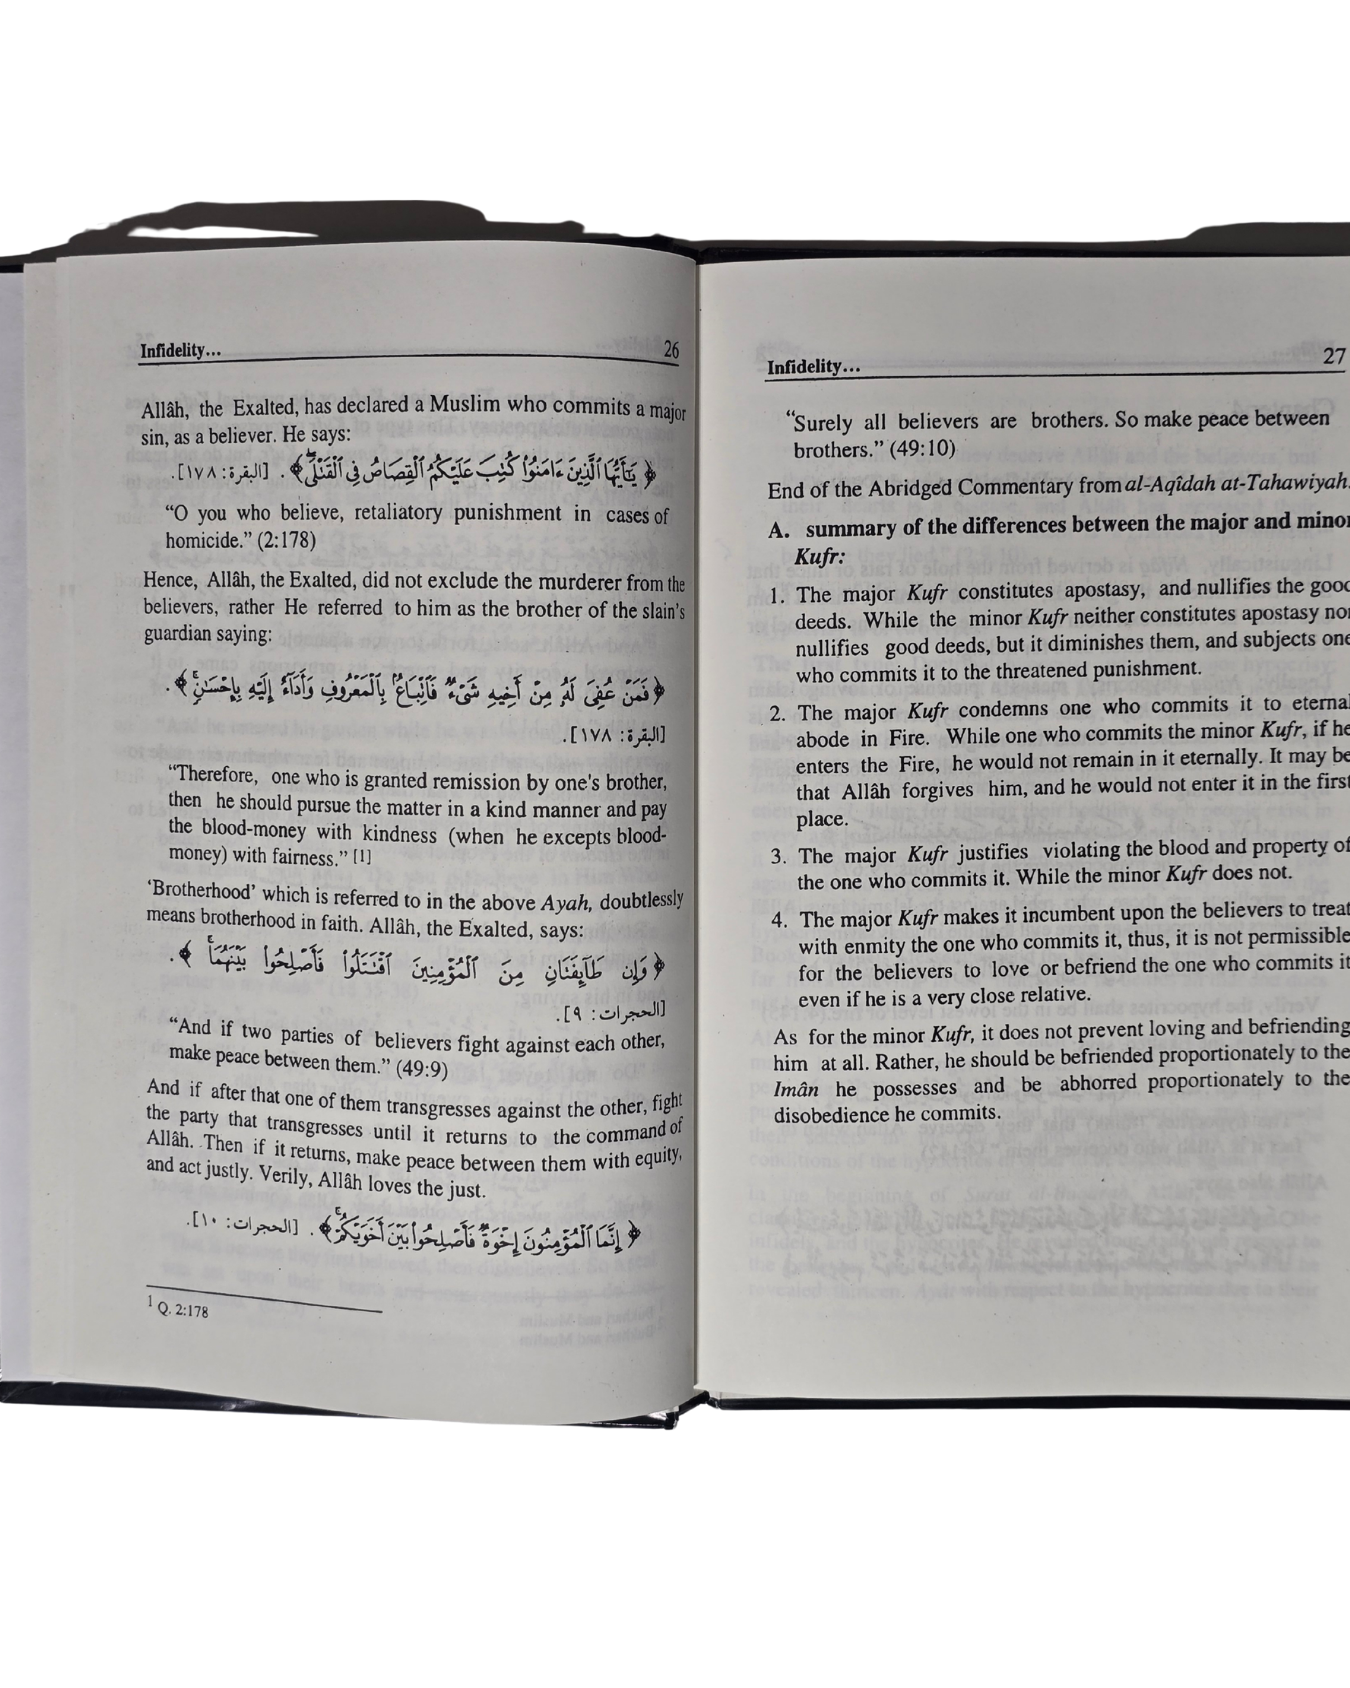 Infidelity... 26
Allâh, the Exalted, has declared a Muslim who commits a major
sin, as a believer. He says:
﴿ يَٰٓأَيُّهَا ٱلَّذِينَ ءَامَنُوا۟ كُتِبَ عَلَيْكُمُ ٱلْقِصَاصُ فِى ٱلْقَتْلَى ﴾. [البقرة: ١٧٨].
“O you who believe, retaliatory punishment in cases of
homicide.” (2:178)
Hence, Allâh, the Exalted, did not exclude the murderer from the
believers, rather He referred to him as the brother of the slain's
guardian saying:
﴿ فَمَنْ عُفِىَ لَهُۥ مِنْ أَخِيهِ شَىْءٌ فَٱتِّبَاعٌۢ بِٱلْمَعْرُوفِ وَأَدَآءٌ إِلَيْهِ بِإِحْسَٰنٍ ﴾.
[البقرة: ١٧٨].
“Therefore, one who is granted remission by one's brother,
then he should pursue the matter in a kind manner and pay
the blood-money with kindness (when he excepts blood-
money) with fairness.” [1]
‘Brotherhood’ which is referred to in the above Ayah, doubtlessly
means brotherhood in faith. Allâh, the Exalted, says:
﴿ وَإِن طَآئِفَتَانِ مِنَ ٱلْمُؤْمِنِينَ ٱقْتَتَلُوا۟ فَأَصْلِحُوا۟ بَيْنَهُمَا ﴾.
[الحجرات: ٩].
“And if two parties of believers fight against each other,
make peace between them.” (49:9)
And if after that one of them transgresses against the other, fight
the party that transgresses until it returns to the command of
Allâh. Then if it returns, make peace between them with equity,
and act justly. Verily, Allâh loves the just.
﴿ إِنَّمَا ٱلْمُؤْمِنُونَ إِخْوَةٌ فَأَصْلِحُوا۟ بَيْنَ أَخَوَيْكُمْ ﴾. [الحجرات: ١٠].
1 Q. 2:178
Infidelity... 27
“Surely all believers are brothers. So make peace between
brothers.” (49:10)
End of the Abridged Commentary from al-Aqîdah at-Tahawiyah.
A. summary of the differences between the major and minor
Kufr:
1. The major Kufr constitutes apostasy, and nullifies the good
deeds. While the minor Kufr neither constitutes apostasy nor
nullifies good deeds, but it diminishes them, and subjects one
who commits it to the threatened punishment.
2. The major Kufr condemns one who commits it to eternal
abode in Fire. While one who commits the minor Kufr, if he
enters the Fire, he would not remain in it eternally. It may be
that Allâh forgives him, and he would not enter it in the first
place.
3. The major Kufr justifies violating the blood and property of
the one who commits it. While the minor Kufr does not.
4. The major Kufr makes it incumbent upon the believers to treat
with enmity the one who commits it, thus, it is not permissible
for the believers to love or befriend the one who commits it
even if he is a very close relative.
As for the minor Kufr, it does not prevent loving and befriending
him at all. Rather, he should be befriended proportionately to the
Imân he possesses and be abhorred proportionately to the
disobedience he commits.